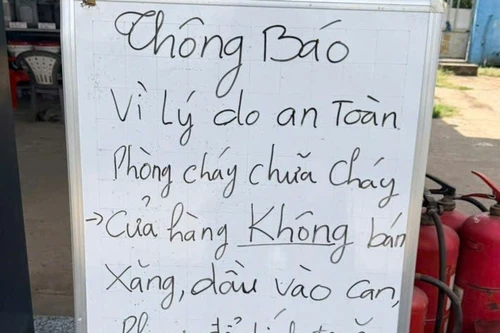 Thông Báo
Vì Lý do an Toàn
Phòng cháy chữa cháy
→ Cửa hàng Không bán
Xăng, dầu vào can,